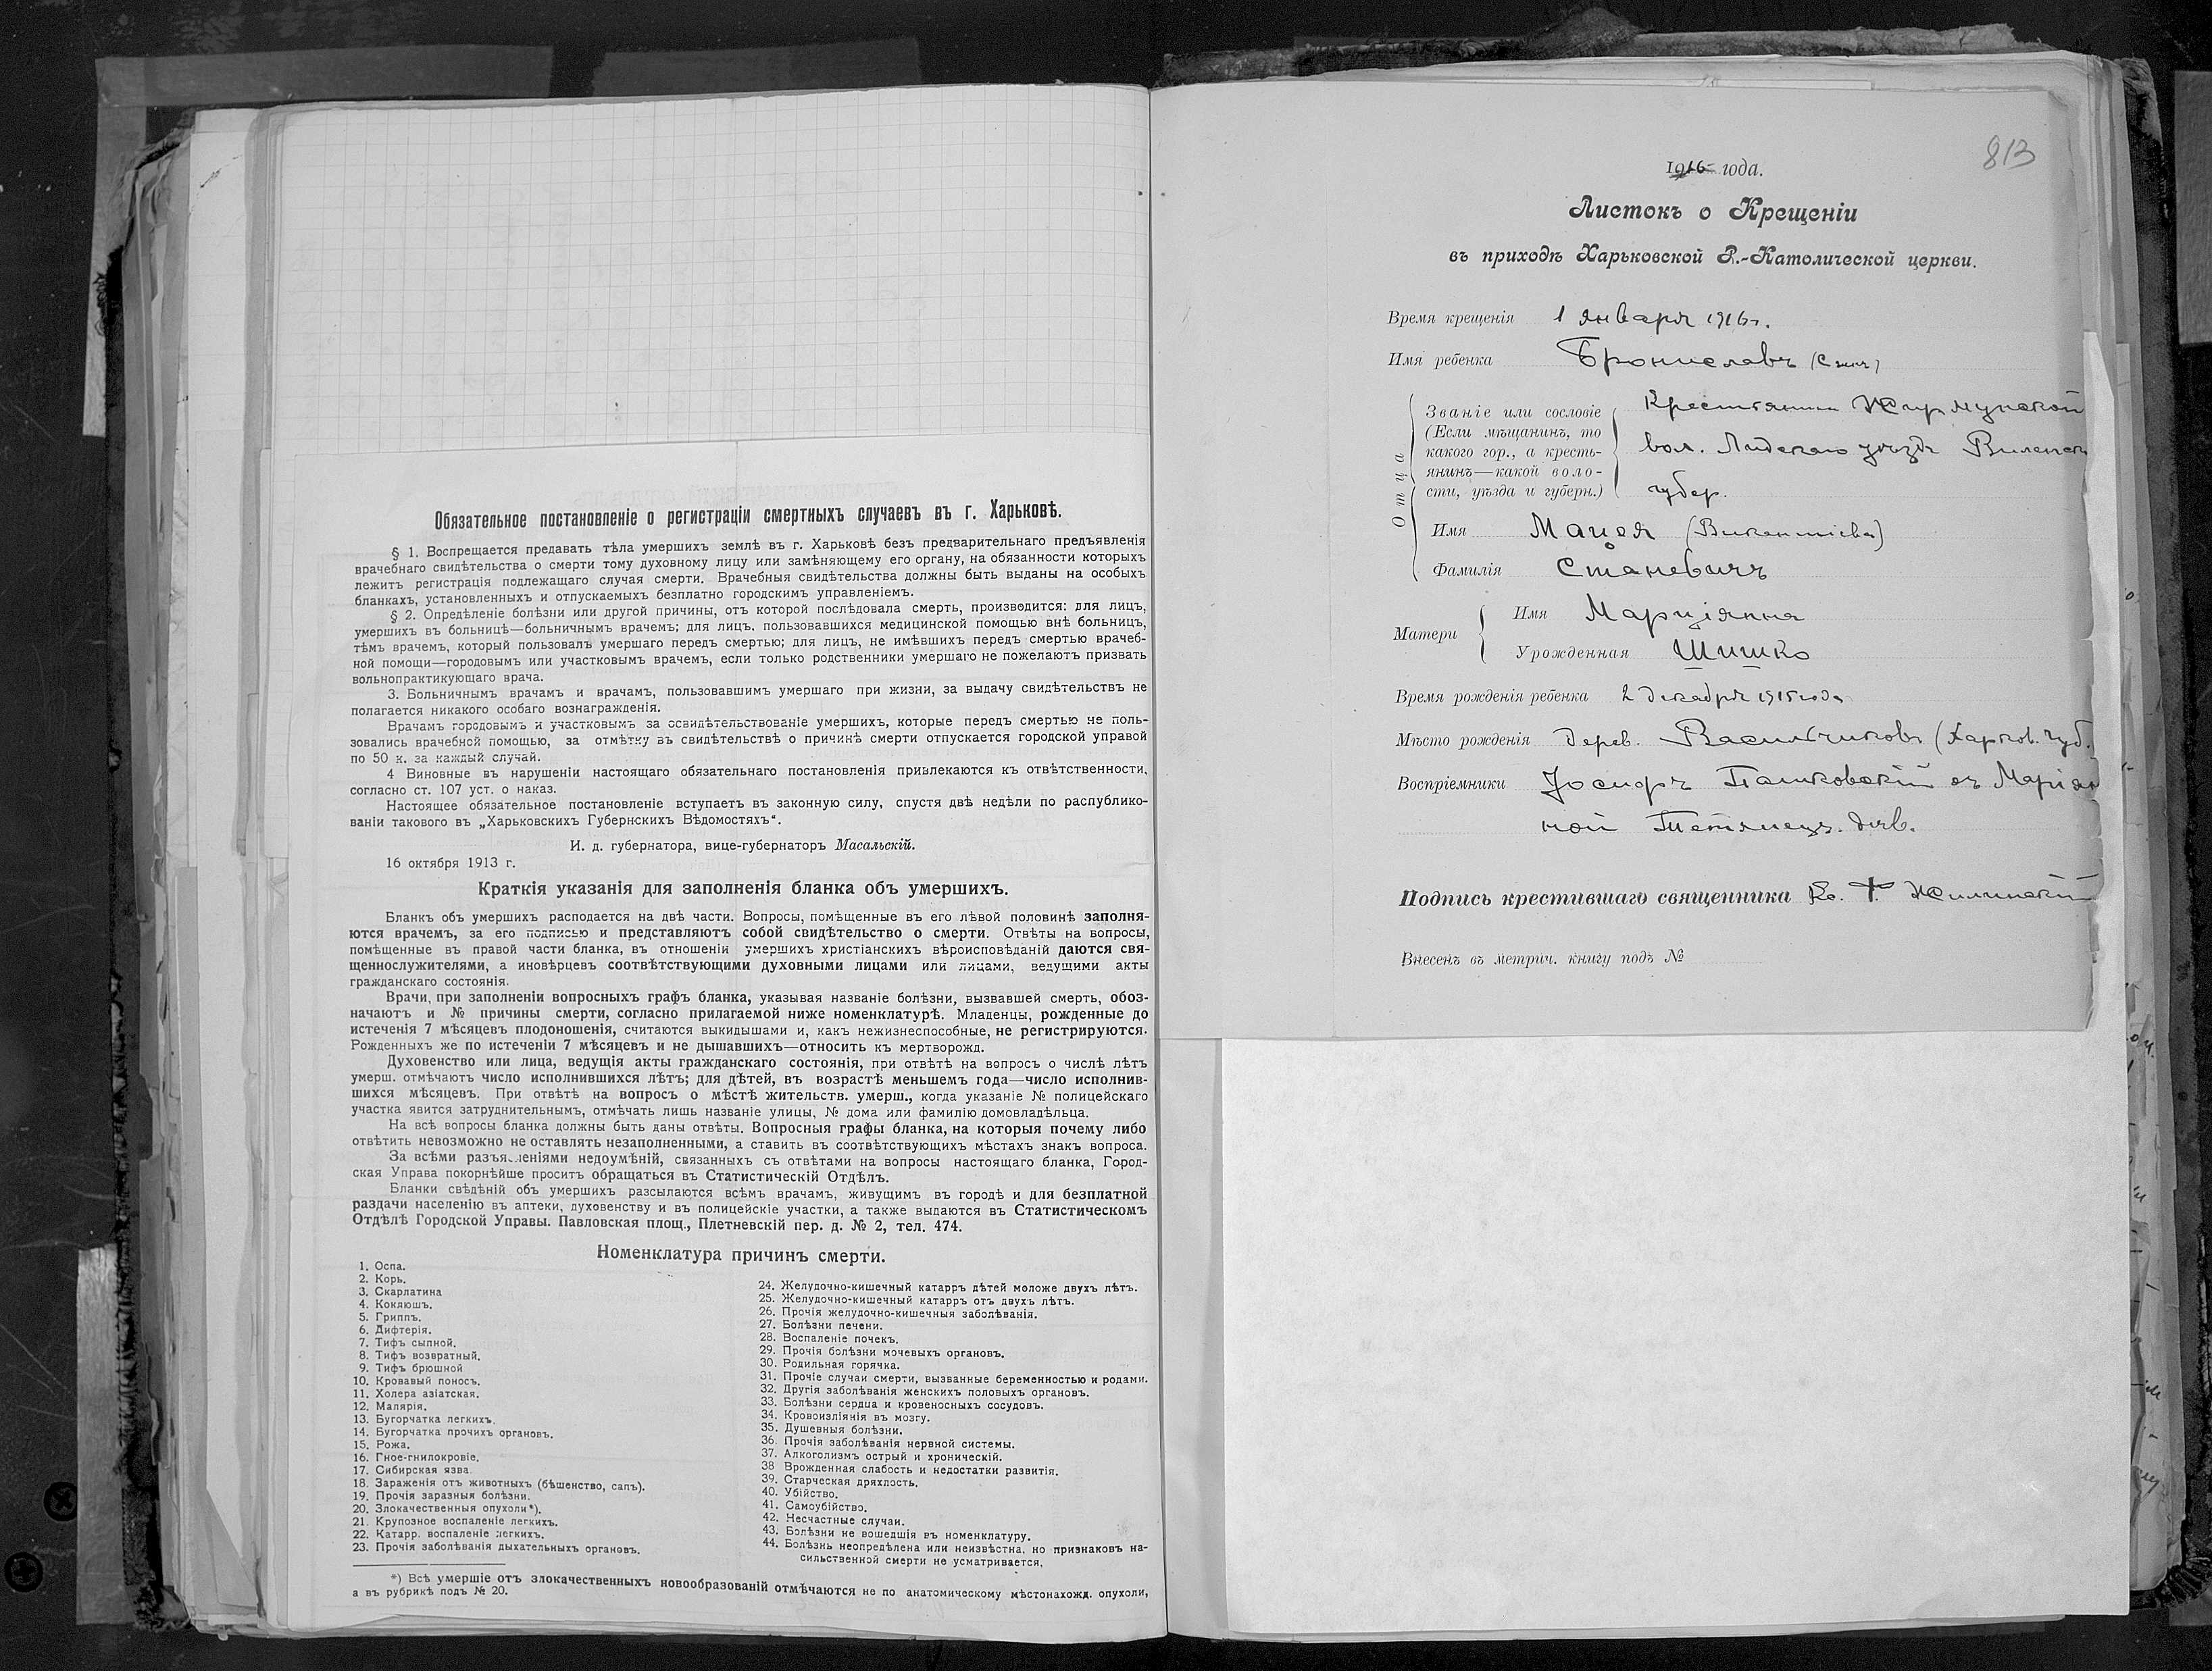 Обязательное постановленіе о регистраціи смертныхъ случаевъ въ г. Харьковѣ.
§ 1. Воспрещается предавать тѣла умершихъ землѣ въ г. Харьковѣ безъ предварительнаго предъявленія
врачебнаго свидѣтельства о смерти тому духовному лицу или замѣняющему его органу, на обязанности которыхъ
лежитъ регистрація подлежащаго случая смерти. Врачебныя свидѣтельства должны быть выданы на особыхъ
бланкахъ, установленныхъ и отпускаемыхъ безплатно городскимъ управленіемъ.
§ 2. Опредѣленіе болѣзни или другой причины, отъ которой послѣдовала смерть, производится: для лицъ,
умершихъ въ больницѣ—больничнымъ врачемъ; для лицъ. пользовавшихся медицинской помощью внѣ больницъ,
тѣмъ врачемъ, который пользовалъ умершаго передъ смертью; для лицъ, не имѣвшихъ передъ смертью врачеб-
ной помощи—городовымъ или участковымъ врачемъ, если только родственники умершаго не пожелаютъ призвать
вольнопрактикующаго врача.
3. Больничнымъ врачамъ и врачамъ, пользовавшимъ умершаго при жизни, за выдачу свидѣтельствъ не
полагается никакого особаго вознагражденія.
Врачамъ городовымъ и участковымъ за освидѣтельствованіе умершихъ, которые передъ смертью не поль-
зовались врачебной помощью, за отмѣтку въ свидѣтельствѣ о причинѣ смерти отпускается городской управой
по 50 к. за каждый случай.
4 Виновные въ нарушеніи настоящаго обязательнаго постановленія привлекаются къ отвѣтственности,
согласно ст. 107 уст. о наказ.
Настоящее обязательное постановленіе вступаетъ въ законную силу, спустя двѣ недѣли по распублико-
ваніи такового въ „Харьковскихъ Губернскихъ Вѣдомостяхъ“.
И. д. губернатора, вице-губернаторъ Масальскій.
16 октября 1913 г.
Краткія указанія для заполненія бланка объ умершихъ.
Бланкъ объ умершихъ расподается на двѣ части. Вопросы, помѣщенные въ его лѣвой половинѣ заполня-
ются врачемъ, за его подписью и представляютъ собой свидѣтельство о смерти. Отвѣты на вопросы,
помѣщенные въ правой части бланка, въ отношеніи умершихъ христіанскихъ вѣроисповѣданій даются свя-
щеннослужителями, а иновѣрцевъ соотвѣтствующими духовными лицами или лицами, ведущими акты
гражданскаго состоянія.
Врачи, при заполненіи вопросныхъ графъ бланка, указывая названіе болѣзни, вызвавшей смерть, обоз-
начаютъ и № причины смерти, согласно прилагаемой ниже номенклатурѣ. Младенцы, рожденные до
истеченія 7 мѣсяцевъ плодоношенія, считаются выкидышами и, какъ нежизнеспособные, не регистрируются.
Рожденныхъ же по истеченіи 7 мѣсяцевъ и не дышавшихъ—относить къ мертворожд.
Духовенство или лица, ведущія акты гражданскаго состоянія, при отвѣтѣ на вопросъ о числѣ лѣтъ
умерш. отмѣчаютъ число исполнившихся лѣтъ; для дѣтей, въ возрастѣ меньшемъ года—число исполнив-
шихся мѣсяцевъ. При отвѣтѣ на вопросъ о мѣстѣ жительств. умерш., когда указаніе № полицейскаго
участка явится затруднительнымъ, отмѣчать лишь названіе улицы, № дома или фамилію домовладѣльца.
На всѣ вопросы бланка должны быть даны отвѣты. Вопросныя графы бланка, на которыя почему либо
отвѣтить невозможно не оставлять незаполненными, а ставить въ соотвѣтствующихъ мѣстахъ знакъ вопроса.
За всѣми разъясненіями недоумѣній, связанныхъ съ отвѣтами на вопросы настоящаго бланка, Город-
ская Управа покорнѣйше проситъ обращаться въ Статистическій Отдѣлъ.
Бланки свѣдѣній объ умершихъ разсылаются всѣмъ врачамъ, живущимъ въ городѣ и для безплатной
раздачи населенію въ аптеки, духовенству и въ полицейскіе участки, а также выдаются въ Статистическомъ
Отдѣлѣ Городской Управы. Павловская площ., Плетневскій пер. д. № 2, тел. 474.
Номенклатура причинъ смерти.
1. Оспа.
2. Корь.
3. Скарлатина
4. Коклюшъ.
5. Гриппъ.
6. Дифтерія.
7. Тифъ сыпной.
8. Тифъ возвратный.
9. Тифъ брюшной
10. Кровавый поносъ.
11. Холера азіатская.
12. Малярія.
13. Бугорчатка легкихъ.
14. Бугорчатка прочихъ органовъ.
15. Рожа.
16. Гное-гнилокровіе.
17. Сибирская язва
18. Зараженія отъ животныхъ (бѣшенство, сапъ).
19. Прочія заразныя болѣзни.
20. Злокачественныя опухоли*).
21. Крупозное воспаленіе легкихъ.
22. Катарр. воспаленіе легкихъ.
23. Прочія заболѣванія дыхательныхъ органовъ.
24. Желудочно-кишечный катарръ дѣтей моложе двухъ лѣтъ.
25. Желудочно-кишечный катарръ отъ двухъ лѣтъ.
26. Прочія желудочно-кишечныя заболѣванія.
27. Болѣзни печени.
28. Воспаленіе почекъ.
29. Прочія болѣзни мочевыхъ органовъ.
30. Родильная горячка.
31. Прочіе случаи смерти, вызванные беременностью и родами.
32. Другія заболѣванія женскихъ половыхъ органовъ.
33. Болѣзни сердца и кровеносныхъ сосудовъ.
34. Кровоизліянія въ мозгу.
35. Душевныя болѣзни.
36. Прочія заболѣванія нервной системы.
37. Алкоголизмъ острый и хроническій.
38 Врожденная слабость и недостатки развитія.
39. Старческая дряхлость.
40. Убійство.
41. Самоубійство.
42. Несчастные случаи.
43. Болѣзни не вошедшія въ номенклатуру.
44. Болѣзнь неопредѣлена или неизвѣстна, но признаковъ на-
сильственной смерти не усматривается.
*) Всѣ умершіе отъ злокачественныхъ новообразованій отмѣчаются не по анатомическому мѣстонахожд. опухоли,
а въ рубрикѣ подъ № 20.
813
1916 года.
Листокъ о Крещеніи
въ приходѣ Харьковской Р.-Католической церкви.
Время крещенія 1 января 1916 г.
Имя ребенка Брониславъ
Отца
Званіе или сословіе
(Если мѣщанинъ, то
какого гор., а кресть-
янинъ—какой воло-
сти, уѣзда и губерн.)
Крестьянина Жирмунской
вол. Лидскаго уѣзда Виленск
губер.
Имя Мацея (Викентіева)
Фамилія Станевичъ
Матери
Имя Марціянна
Урожденная Шишко
Время рожденія ребенка 2 декабря 1915 года
Мѣсто рожденія дерев. Васильчиковъ (Харьков. губ.
Воспріемники Іосифъ Пашковскій съ Маріан
ной дѣв.
Подпись крестившаго священника Кс. Жилинскій
Внесенъ въ метрич. книгу подъ №